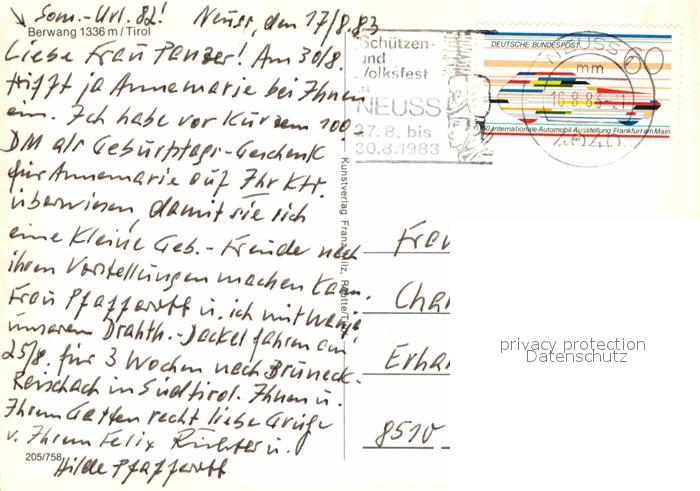 Som.-Url. 82! Neuss, den 17/8.83
Berwang 1336 m / Tirol
Liebe Frau Panzer! Am 30/8.
trifft ja Annemarie bei Ihnen
ein. Ich habe vor kurzem 100
DM als Geburtstags-Geschenk
für Annemarie auf Ihr Kto.
überwiesen, damit sie sich
eine kleine Geb.-Freude nach
ihren Vorstellungen machen kann.
Frau Pfafferott u. ich mit
unserem Drahth.-Dackel fahren am
25/8. für 3 Wochen nach Bruneck-
Reischach in Südtirol. Ihnen u.
Ihrem Gatten recht liebe Grüße
v. Ihrem Felix Richter u.
Hilde Pfafferott
205/758
Kunstverlag Franz Milz, Reutte/Tirol
Schützen-
und
Volksfest
in
NEUSS
27.8. bis
30.8.1983
DEUTSCHE BUNDESPOST
60
Internationale Automobil-Ausstellung Frankfurt am Main
NEUSS
mm
4040
Frau
Char
Erhar
8510
privacy protection
Datenschutz